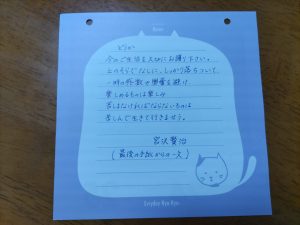 どうか
今のご生活を大切にお護り下さい。
上のそらでなしに、しっかり落ちついて、
一時の感激や興奮を避け、
楽しめるものは楽しみ、
苦しまなければならないものは
苦しんで生きて行きませう。
宮沢賢治
(最後の手紙からの一文)
Everyday Nyan Nyan